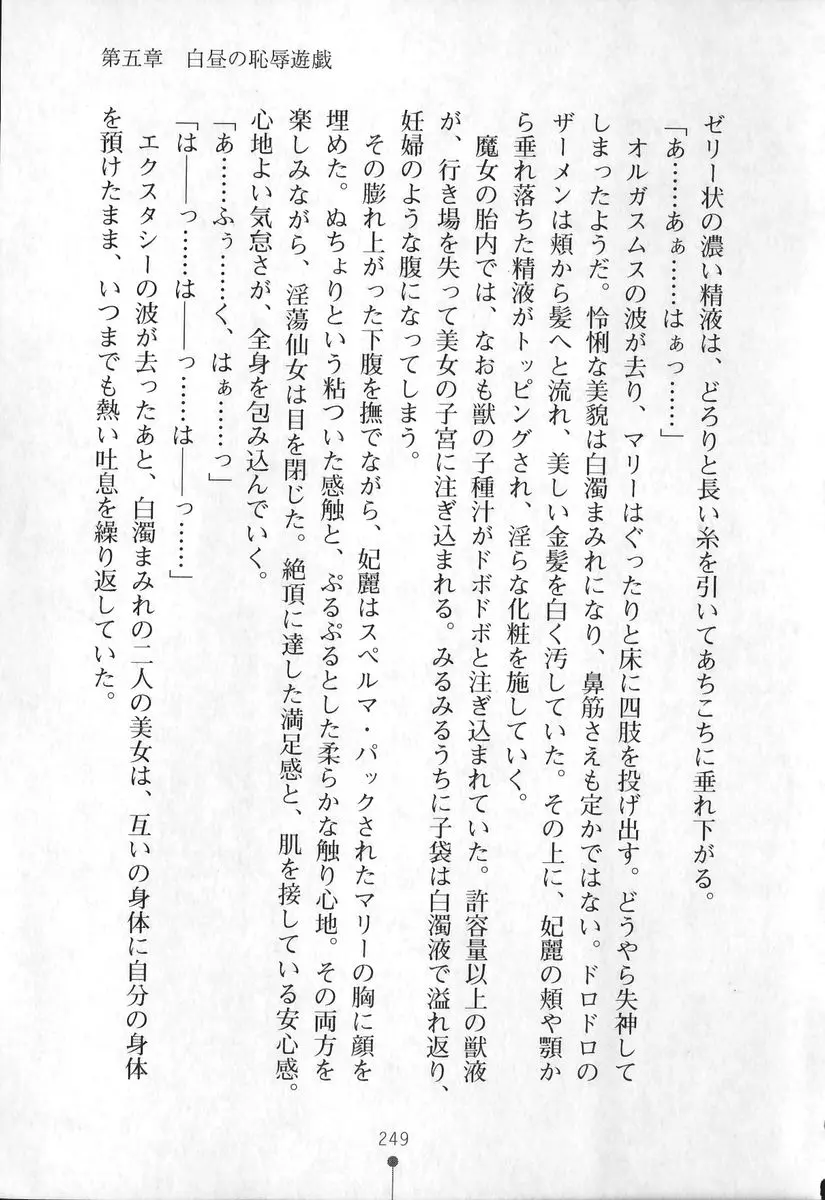 第五章　白昼の恥辱遊戯
ゼリー状の濃い精液は、どろりと長い糸を引いてあちこちに垂れ下がる。
「あ……あぁ……はぁっ……」
オルガスムスの波が去り、マリーはぐったりと床に四肢を投げ出す。どうやら失神して
しまったようだ。怜悧な美貌は白濁まみれになり、鼻筋さえも定かではない。ドロドロの
ザーメンは頬から髪へと流れ、美しい金髪を白く汚していた。その上に、妃麗の頬や顎か
ら垂れ落ちた精液がトッピングされ、淫らな化粧を施していく。
魔女の胎内では、なおも獣の子種汁がドボドボと注ぎ込まれていた。許容量以上の獣液
が、行き場を失って美女の子宮に注ぎ込まれる。みるみるうちに子袋は白濁液で溢れ返り、
妊婦のような腹になってしまう。
その膨れ上がった下腹を撫でながら、妃麗はスペルマ・パックされたマリーの胸に顔を
埋めた。ぬちょりという粘ついた感触と、ぷるぷるとした柔らかな触り心地。その両方を
楽しみながら、淫蕩仙女は目を閉じた。絶頂に達した満足感と、肌を接している安心感。
心地よい気怠さが、全身を包み込んでいく。
「あ……ふぅ……く、はぁ……っ」
「は――っ……は――っ……は――っ……」
エクスタシーの波が去ったあと、白濁まみれの二人の美女は、互いの身体に自分の身体
を預けたまま、いつまでも熱い吐息を繰り返していた。
249